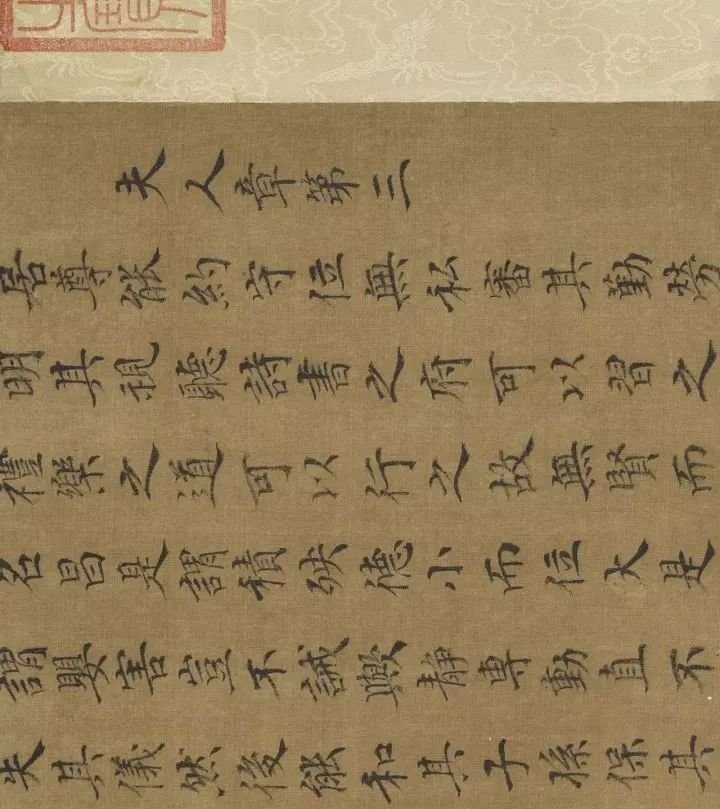 夫人章第三
居尊能約守位無私審其勤勞
明其視聽詩書之府可以習之
禮樂之道可以行之故無賢而
名昌是謂積殃德小而位大是
謂嬰害豈不誡歟靜專動直不
失其儀然後能和其子孫保其